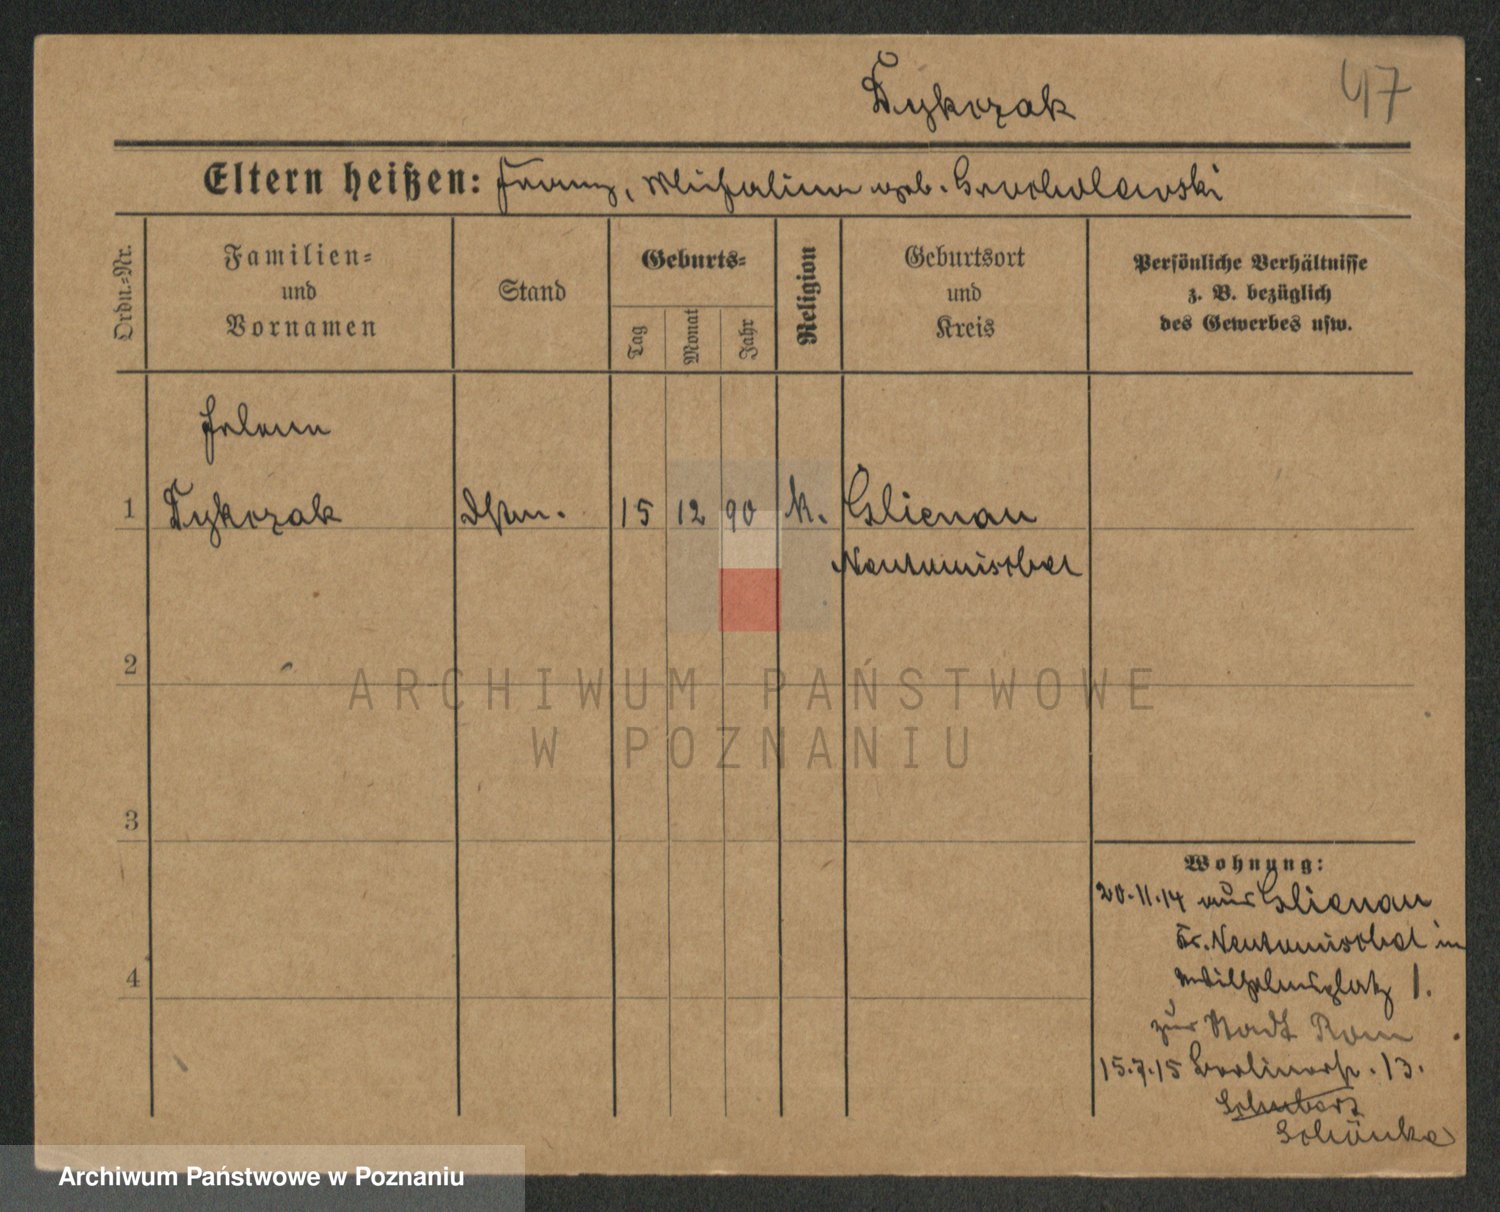 Tykczak
47
Eltern heißen: Franz, Michalina geb. Grocholewski
Ordn.-Nr.
Familien-
und
Vornamen
Stand
Geburts-
Tag
Monat
Jahr
Religion
Geburtsort
und
Kreis
Persönliche Verhältnisse
z. B. bezüglich
des Gewerbes usw.
Helene
1 Tykczak 15 12 90 k. Glienau
Neutomischel
2
3
4
Wohnung:
20.11.14 aus Glienau
Kr. Neutomischel in
Wilhelmsplatz 1.
zur Stadt Rom
15.7.15 Berlinerstr. 13.
Schubert
Schönke
ARCHIWUM PAŃSTWOWE
W POZNANIU
Archiwum Państwowe w Poznaniu